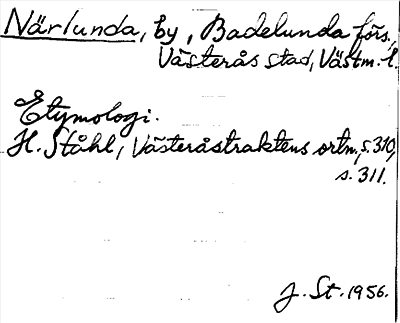 Närlunda, by, Badelunda förs.,
Västerås stad, Västm. l.
Etymologi.
H. Ståhl, Västeråstraktens ortn., s. 310,
s. 311.
J. St. 1956.